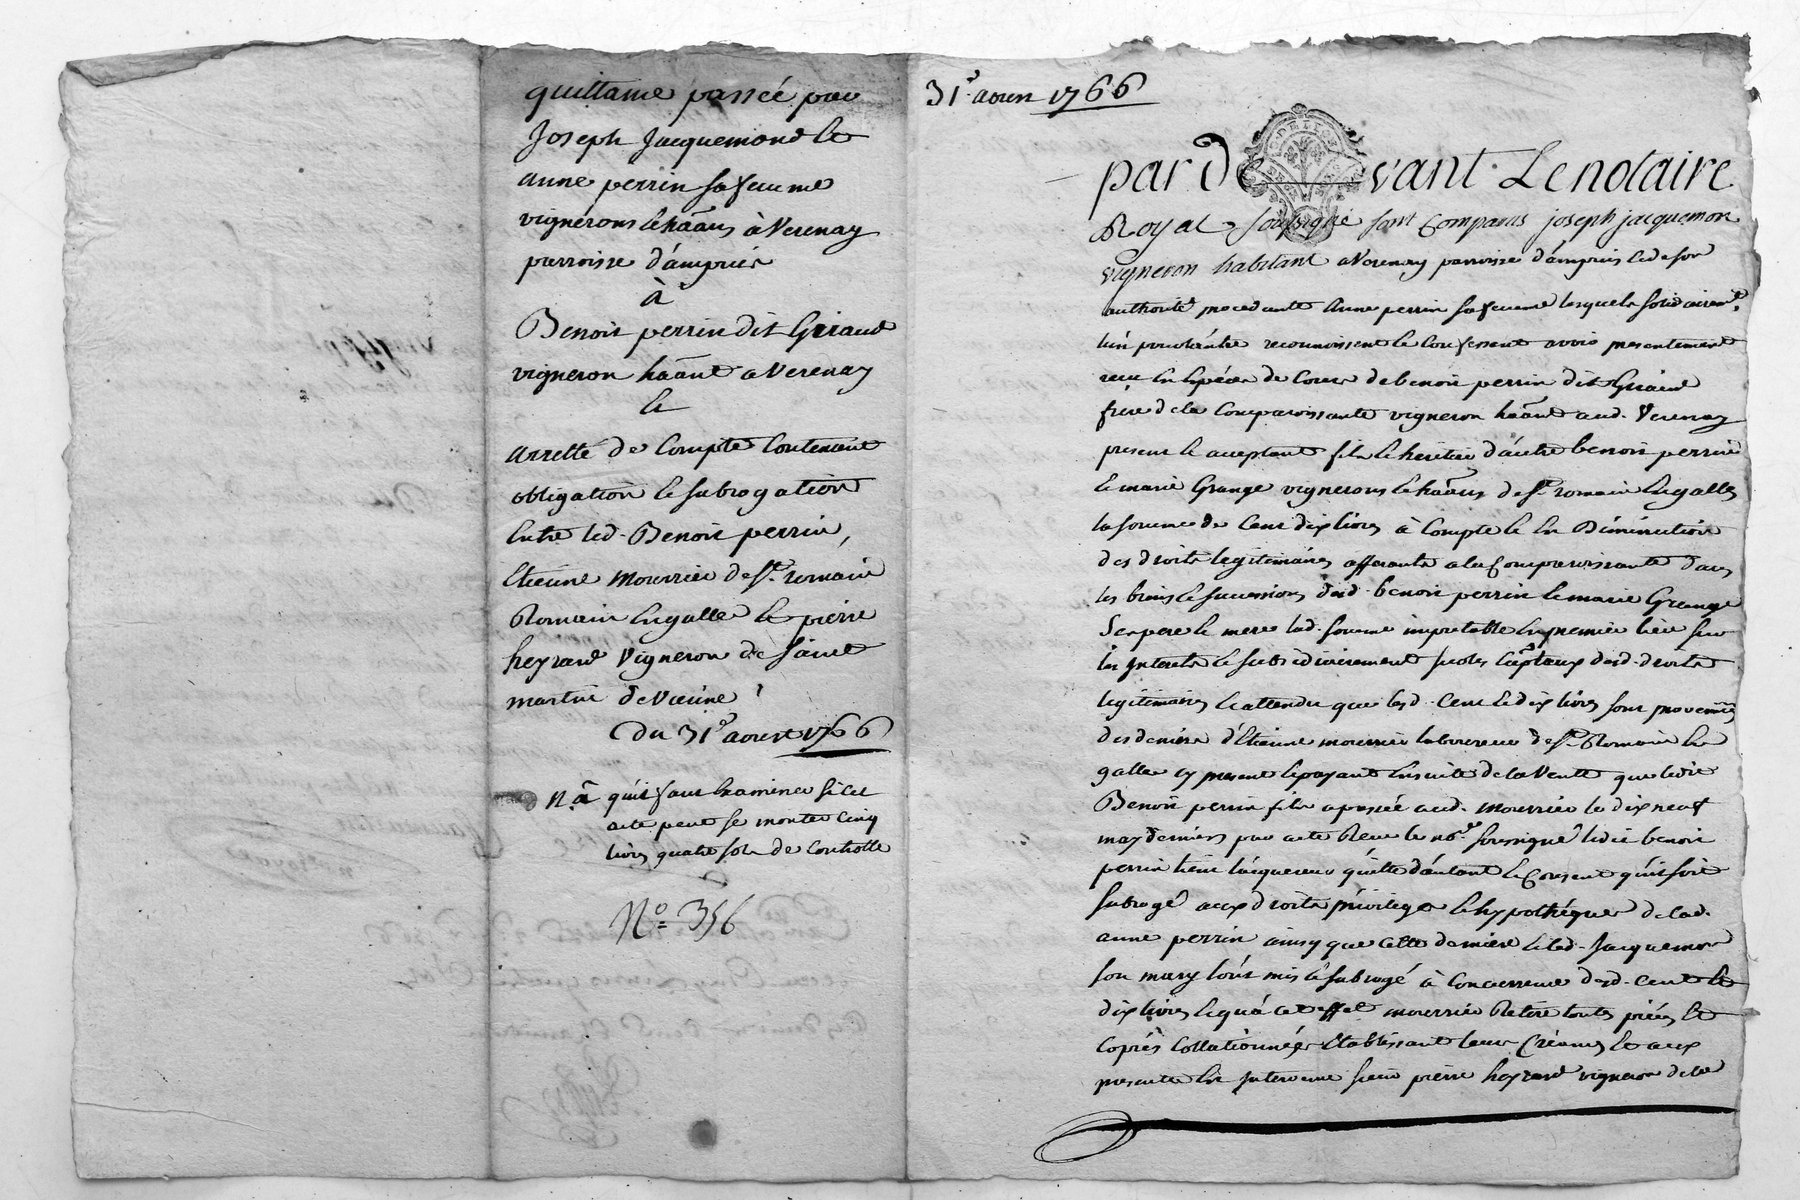 quittance passée par
Joseph Jacquemond et
anne perrin sa femme
vignerons & haâns à Verenay
parroisse d'ampuis
à
Benoit perrin dit Giraud
vigneron haânt a Verenay
Et
arretté de Compte Contenant
obligation & subrogation
Entre led. Benoit perrin,
Etienne mourrier de St. romain
Romain Engalle et pierre
heyraud vigneron de saint
martin de Vienne
Du 31e. aoust 1766
N.a qu'il faut Examiner si cet
acte peut se monter Cinq
livres quatre sols de Controlle
No. 356
31e. aoust 1766
par devant Le notaire
Royal soussigné sont Comparus joseph jacquemon
vigneron habitant a Verenay parroisse d'ampuis & de son
authorité procedante anne perrin sa femme lesquels solidairemt.
l'un pour l'autre reconnoissent & Confessent avoir presentement
reçu En Espèces de Cours de benoit perrin dit Giraud
frere de la Comparoissante vigneron haânt aud. Verenay
present & acceptant fils & heritier d'autre benoit perrin
& marie Grange vignerons & haâns de St. romain Engalles
la somme de Cent dix livres à Compte & En Diminution
des droits legitimaires afferants a la Comparoissante dans
les biens & successions desd. benoit perrin & marie Grange
Ses pere & mere lad. somme imputable En premier lieu sur
les Interets & subsidiairement sur les Capitaux desd. droits
legitimaires & attendu que lesd. Cent & dix livres sont provenues
des deniers d'Etienne mourrier laboureur de St. Romain En
galle cy present & payant Ensuite de la Vente que ledit
Benoit perrin fils a passée aud. mourrier le dix neuf
may dernier par acte Reçu le nore. soussigné ledit benoit
perrin tient l'acquereur quitte d'autant & Consent qu'il soit
subrogé aux droits privileges & hypothéques de lad.
anne perrin ainsy que cette derniere & led. Jacquemon
son mary l'ont mis & subrogé à Concurrence desd. cent &
dix livres & qu'à cet effet mourrier Retire toutes pièces &
Copies Collationnées Etablissant leur Créance & aux
presentes Est Intervenu sieur pierre heyraud vigneron de la